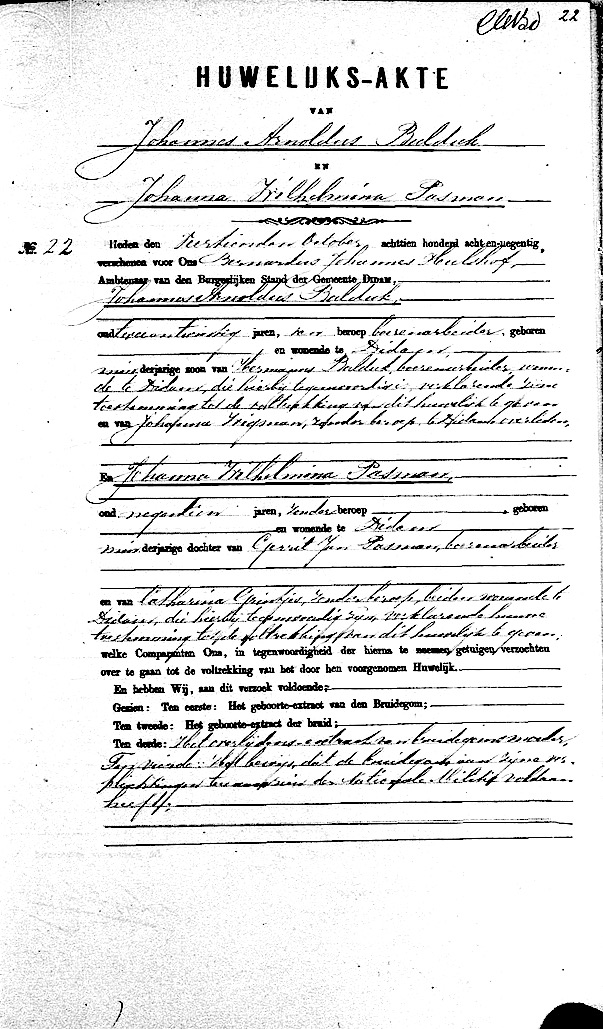 22
HUWELIJKS-AKTE
VAN
Johannes Arnoldus Bulduk
EN
Johanna Wilhelmina Pasman
№. 22 Heden den Veertienden October achttien honderd acht-en-negentig,
verschenen voor Ons Bernardus Johannes Hulshof,
Ambtenaar van den Burgerlijken Stand der Gemeente DIDAM,
Johannes Arnoldus Bulduk,
oud jaren, van beroep boerenarbeider, geboren
en wonende te Didam,
minderjarige zoon van Hermanus Bulduk, boerenarbeider, wonen-
de te Didam, die hierbij tegenwoordig is, verklarende zijne
toestemming tot de voltrekking van dit huwelijk te geven
en van Johanna zonder beroep, te Didam overleden,
En Johanna Wilhelmina Pasman,
oud negentien jaren, zonder beroep, geboren
en wonende te Didam
minderjarige dochter van Gerrit Jan Pasman, boerenarbeider
en van Catharina zonder beroep, beiden wonende te
Didam, die hierbij tegenwoordig zijn, verklarende hunne
toestemming tot de voltrekking van dit huwelijk te geven;
welke Comparanten Ons, in tegenwoordigheid der hierna te noemen getuigen, verzochten
over te gaan tot de voltrekking van het door hen voorgenomen Huwelijk.
En hebben Wij, aan dit verzoek voldoende;
Gezien: Ten eerste: Het geboorte-extract van den Bruidegom;
Ten tweede: Het geboorte-extract der bruid;
Ten derde: Het overlijdens-extract van bruidegoms moeder,
Ten vierde: Het bewijs, dat de bruidegom aan zijne ver-
plichtingen ten aanzien der Nationale Militie voldaan
heeft;